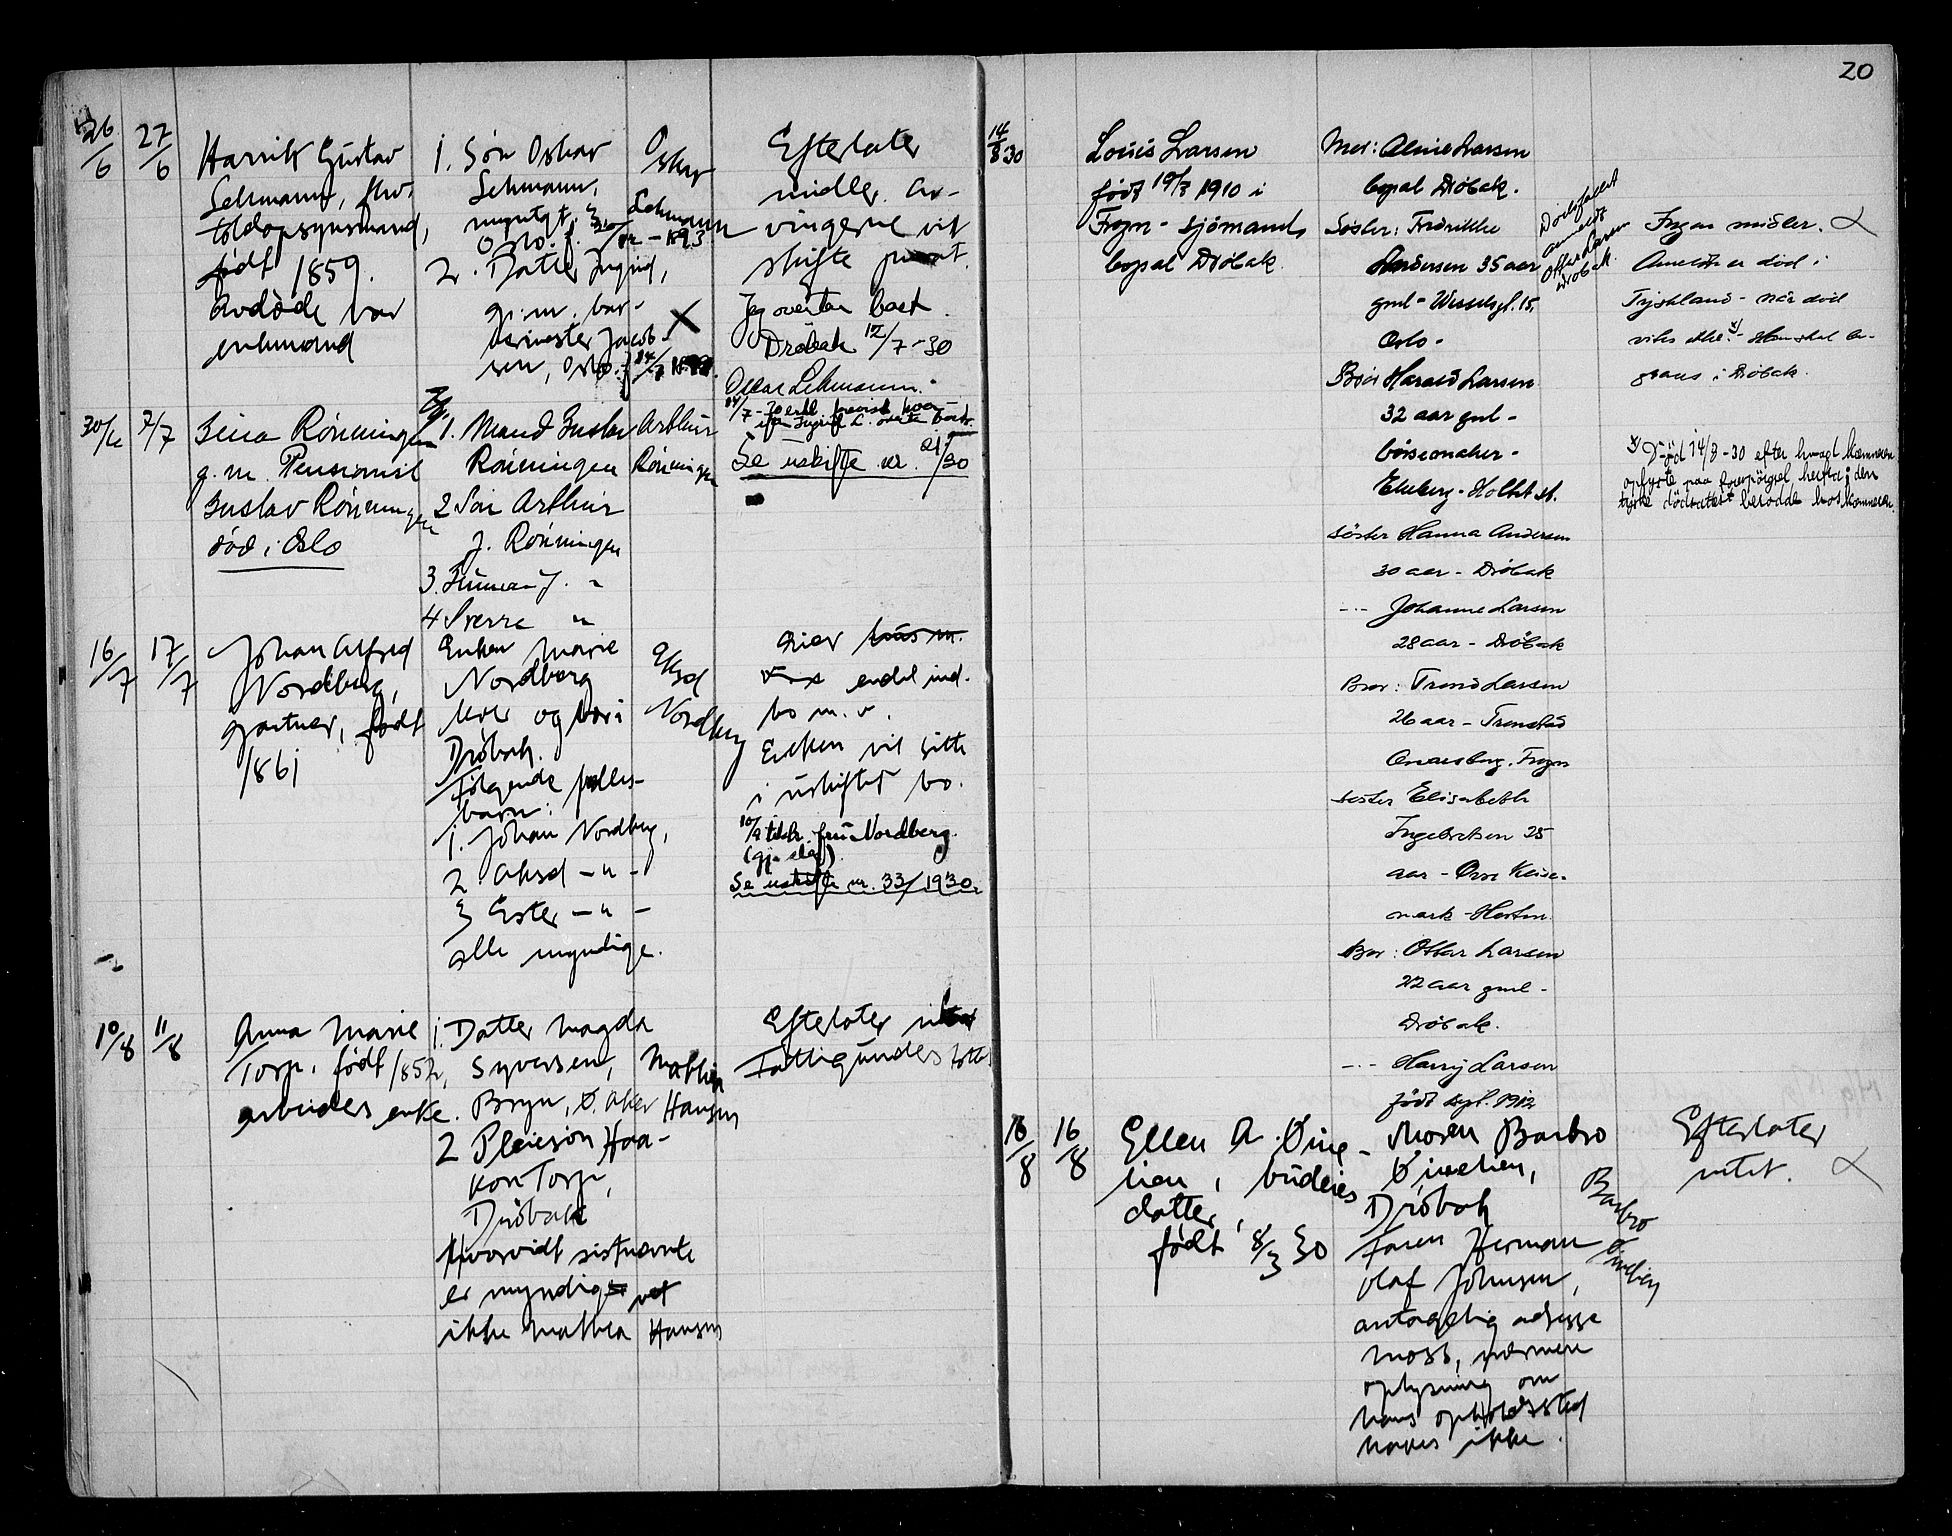 20
26/6
27/6
Henrik Gustav
Lehmann, fhv.
toldopsynsmand,
født 1859.
Avdøde var
enkemand
1. Søn Oskar
Lehmann,
myndig,
Oslo. f. 30/12-1893
2. Datter Ingrid,
g. m. bar-
Jacob-
sen, Oslo. f.
Oskar
Lehmann
Efterlater
midler. Ar-
vingerne vil
skifte privat.
Jeg overtar boet.
Drøbak 12/7-30
Oscar Lehmann.
30/6
7/7
Rönningen
g. m. Pensionist
Gustav Rönningen
død i Oslo
1. Mand Gustav
Rönningen
2 Søn Arthur
J. Rönningen
3. Gunnar J. "
4 Sverre "
Arthur
Rönningen
Se uskifte nr. 21/30
16/7
17/7
Johan Alfred
Nordberg,
gartner, født
1861
Enken Marie
Nordberg
lever og bor i
Drøbak.
Følgende felles-
barn:
1. Johan Nordberg,
2 Aksel - " -
3 Ester - " -
alle myndige.
Aksel
Nordberg
Eier hus m.
endel ind-
bo m. v.
Enken vil sitte
i uskiftet bo.
10/9 tilskr. fru Nordberg.
Se uskifte nr. 33/1930.
10/8
11/8
Anna Marie
Torp, født 1852,
arbeiders enke.
1. Datter Magda
Syversen,
Bryn, Ø. Aker
2 Pleiesøn Haa-
kon Torp,
Drøbak
Hvorvidt sistnevnte
er myndig vet
ikke Mathea Hansen
Mathea
Hansen
Efterlater intet
Fattigunderstøttet
14/8 30
Louis Larsen
født 19/3 1910 i
Frogn - sjömand,
bopæl Dröbak.
Mor: Aline Larsen
bopæl Dröbak.
Søster: Fredrikke
Andersen 35 aar
gml - Wesselsgt. 15,
Oslo -
Bror Harald Larsen
32 aar gml -
børsemaker -
Ekeberg - Holtet st.
søster Hanna Andersen
30 aar - Dröbak
-"- Johanne Larsen
28 aar - Dröbak
Bror: Trond Larsen
26 aar -
Frogn
søster Elisabeth
Ingebretsen 25
aar -
mark - Horten
Bror: Ottar Larsen
22 aar gml -
Dröbak.
-"- Harry Larsen
født sept. 1912
Dødsfallet
anmeldt
Ottar Larsen
Drøbak.
Ingen midler.
Anmeldte er død i
Tyskland - når død
vites ikke. x) - Han skal be-
graves i Dröbak.
x) Död 14/8-30 efter hvad kæmneren
oplyste paa forespörgsel, herfra; den
tyske dödsattest beroede hos kæmneren.
16/8
16/8
Ellen A. Øine-
lien, budeies
datter,
født 8/3 30
Moren Barbro
Øinelien,
Drøbak
Faren Herman
Olaf Johnsen,
antagelig adresse
Moss, nærmere
oplysning om
hans opholdssted
haves ikke.
Barbro
Øinelien
Efterlater
intet.